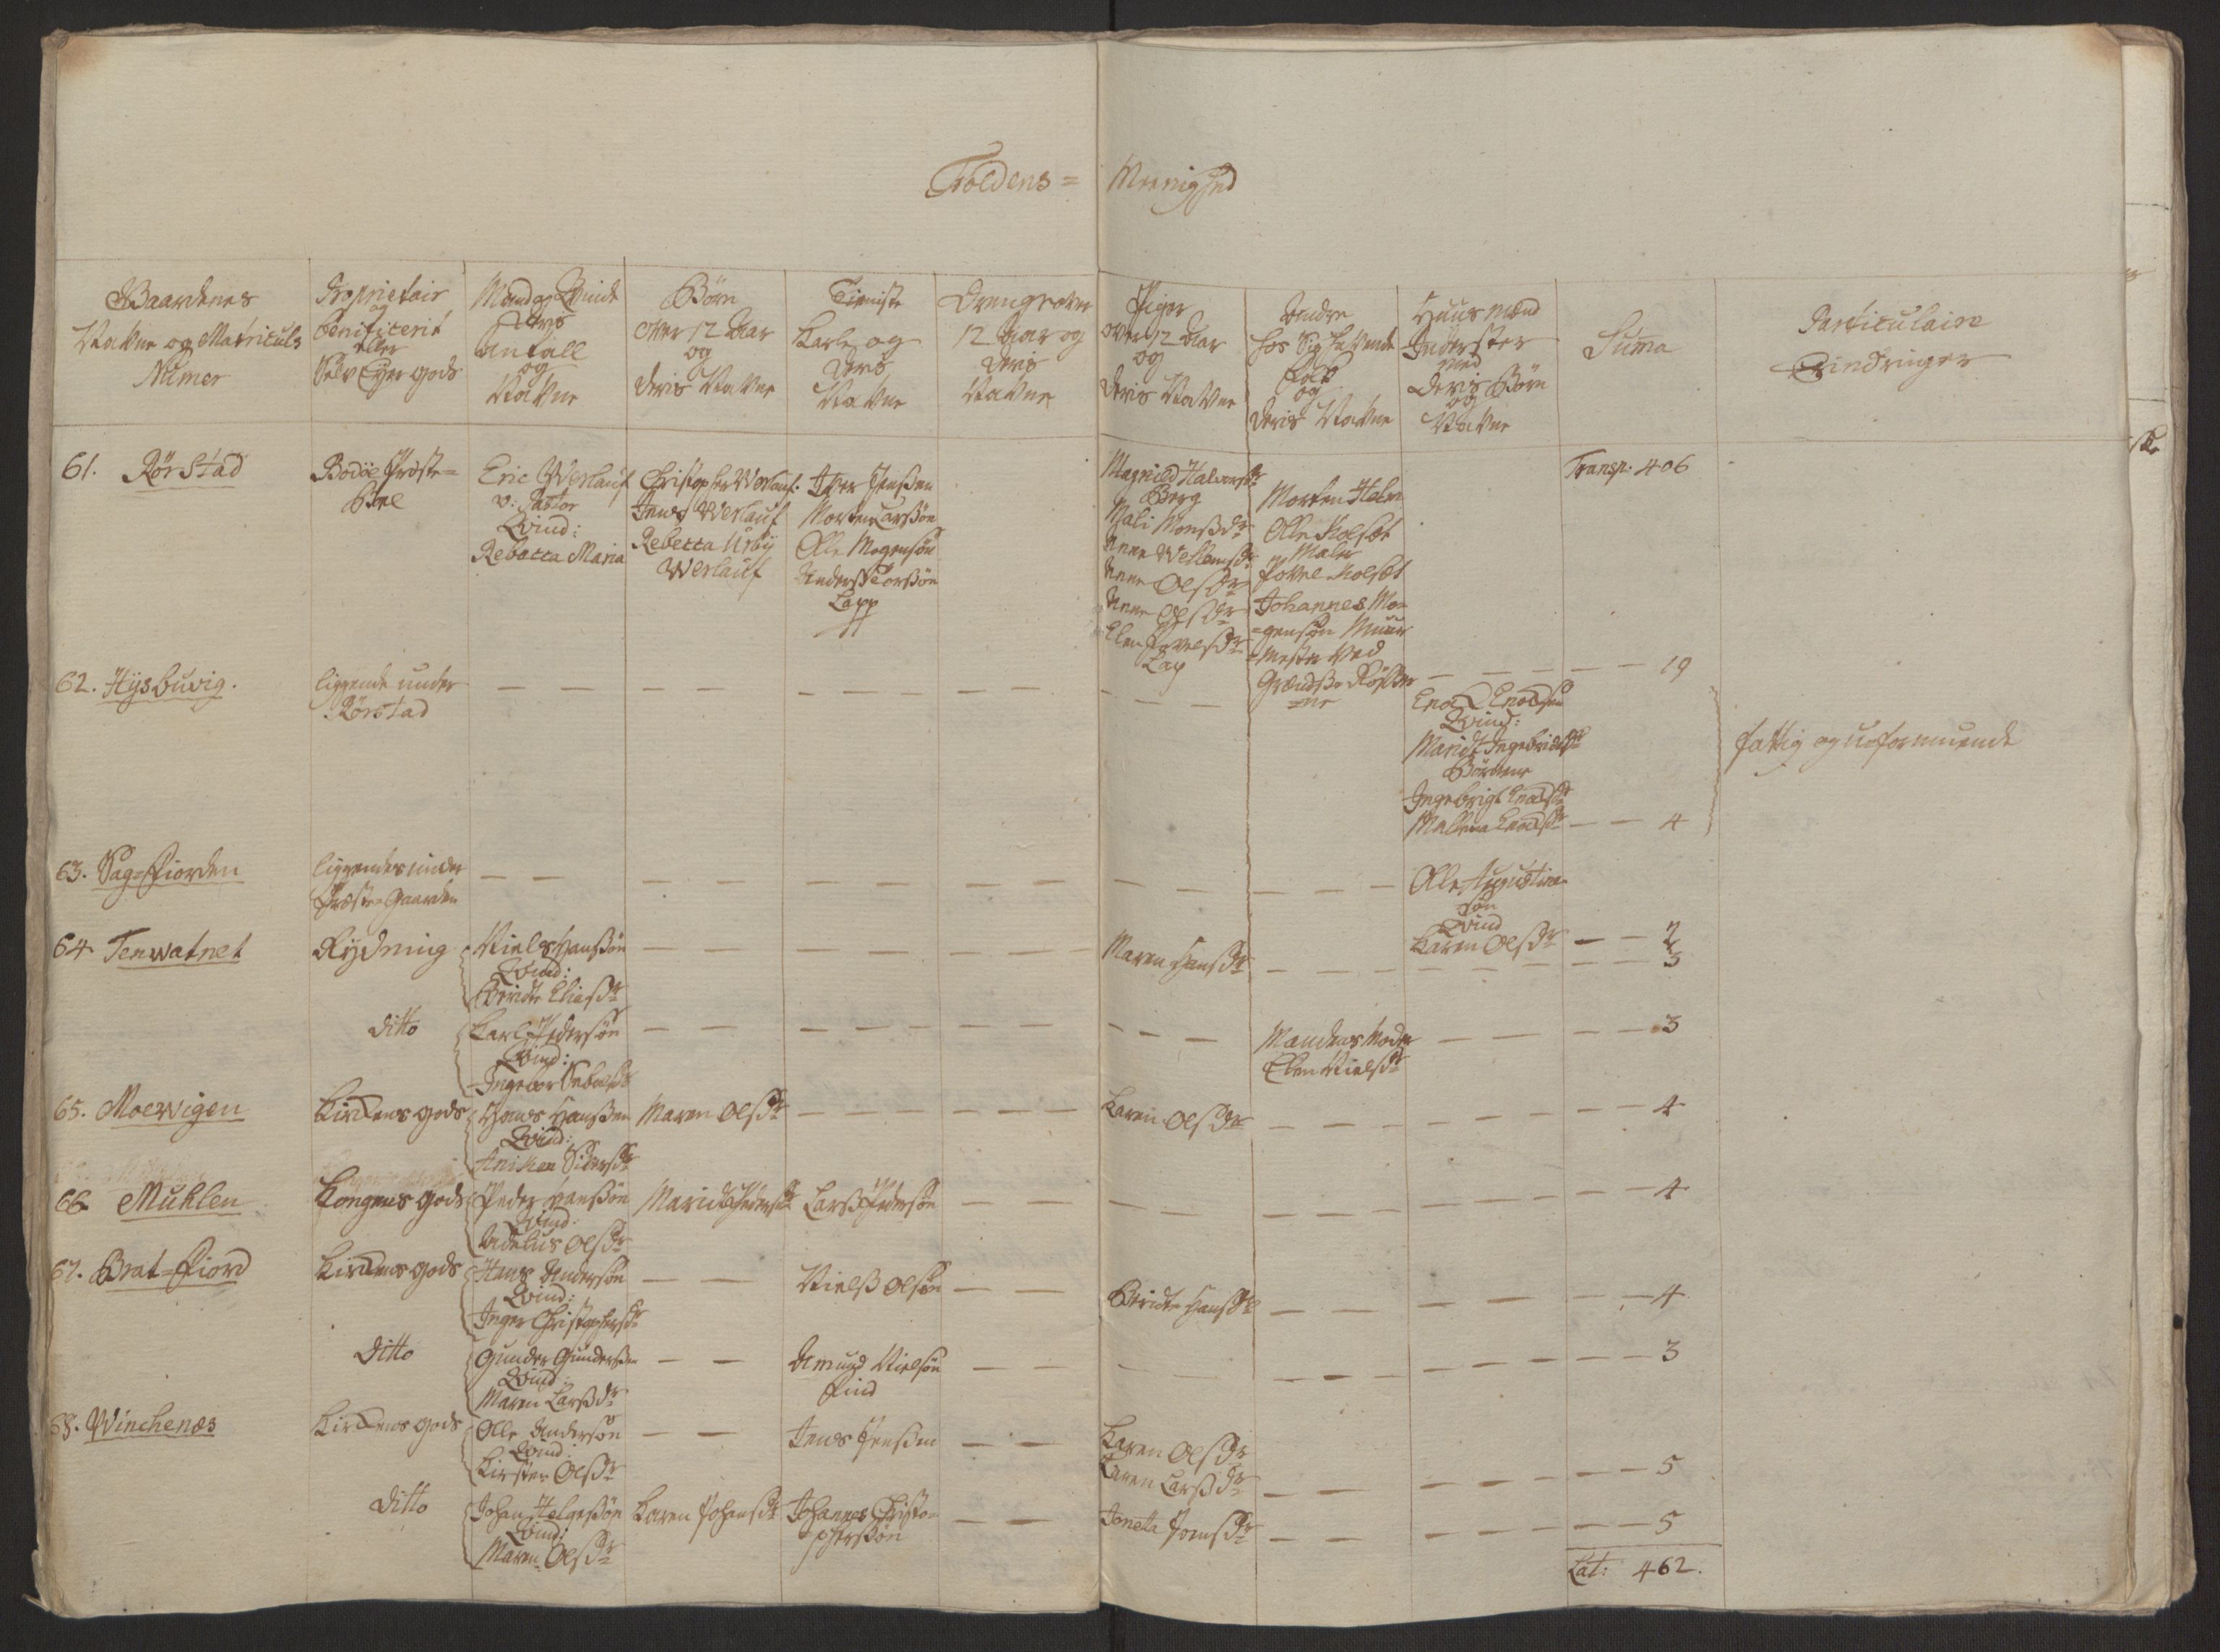 Foldens= Meenighed
Gaardenes
Nafne og Matriculs
Numer
Proprietair
og
beneficerit
eller
Selv Eyer gods
Mand og Qvinde
deris
antall
og
Nafne
Børn
over 12 Aar
og
deris Nafne
Tieniste
Karle og
deris
Nafne
Drenge over
12 Aar og
deris
Nafne
Piger
over 12 Aar
og
deris Nafne
Andre
hos Sig hafvende
Folk
og
deris Nafne
Huus Mænd
Inderster
med
deris Børn
og
Nafne
Suma
Particulaire
Erindringer
61. Rørstad
Bodøe Præste=
Boel
Eric Werlauf
v: Pastor
Qvind:
Rebecca Maria
Christopher Werlauf.
Jens Werlauf
Rebecca Urby
Werlauf
Iver Jenßen
Morten Larßøn
Olle Mogensøn
Anders Torßøn
Lapp
Magnild Halvorsdr
Berg
Mali Monßdr
Anne Wellomsdr
Anne Olsdr
Anne Olsdr
Elen Povelsdr
Lap
Morten Holm
Olle Kolset
Maler
Povel Kolset
Johannes Mo=
=gensøn Muur
=Mester ved
Grændse Røßer
=ne
Transp: 406
19
62. Hysbuvig.
liggende under
Rørstad
Enoch Enochsen
Qvind:
Maridt Ingebrictsdr
Børnene
Ingebrigt Enochsdr
Mallena Enochsdr — — 4
fattig og uformuende
63. Sag=Fiorden
liggendes under
Præste=Gaarden
Olle Augustinu
søn
Qvind
Karen Olsdr — — 2
64 Tenwatnet
Rydning
Niels Hansøn
Qvind:
Beridte Eliasdr
Maren Hansdr
3
ditto
Karl Pedersøn
Qvind:
Ingebor Sebalsdr
Mandens Moder
Elen Nielsdr
3
65. Moewigen
Kirckens gods
Hans Hanßen
Qvind:
Aniken Sidersdr
Maren Olsdr
Karen Olsdr
4
66. Muhlen
Kongens gods
Peder Hansøn
Qvind:
Adelus Olsdr
Maridt Pedersdr
Larß Pedersøn
4
67. Brat=Fiord
Kirckens gods
Hans Andersøn
Qvind:
Inger Christophersdr
Nielß Olsøn
Beridte Hansdr
4
Ditto
Gunder Gundersen
Qvind
Maren Larßdr
Amund Nielsøn
Find
3
68. Winchenæs
Kirckens gods
Olle Andersøn
Qvind:
Kirsten Olsdr
Jens Jensen
Karen Olsdr
Karen Larßdr
5
Ditto
Johan Helgeßøn
Qvind:
Maren Olsdr
Karen Johansdr
Johannes Christo=
phersøn
Joneta Joensdr
5
Lat: 462.